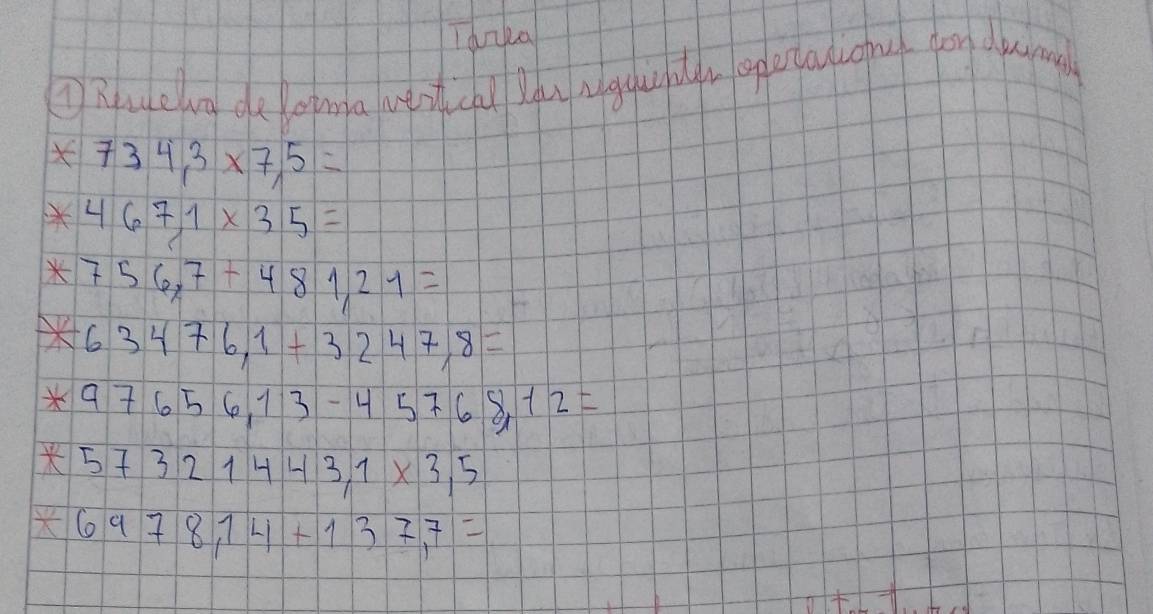 Tarea
① Resuelva de forma vertical las siguientes operaciones con decimales
* 734,3 x 7,5 =
* 467,1 x 35 =
* 756,7 + 481,21 =
* 63476,1 + 3247,8 =
* 97656,13 - 45768,12 =
* 573214443,1 x 3,5
* 6978,14 + 137,7 =